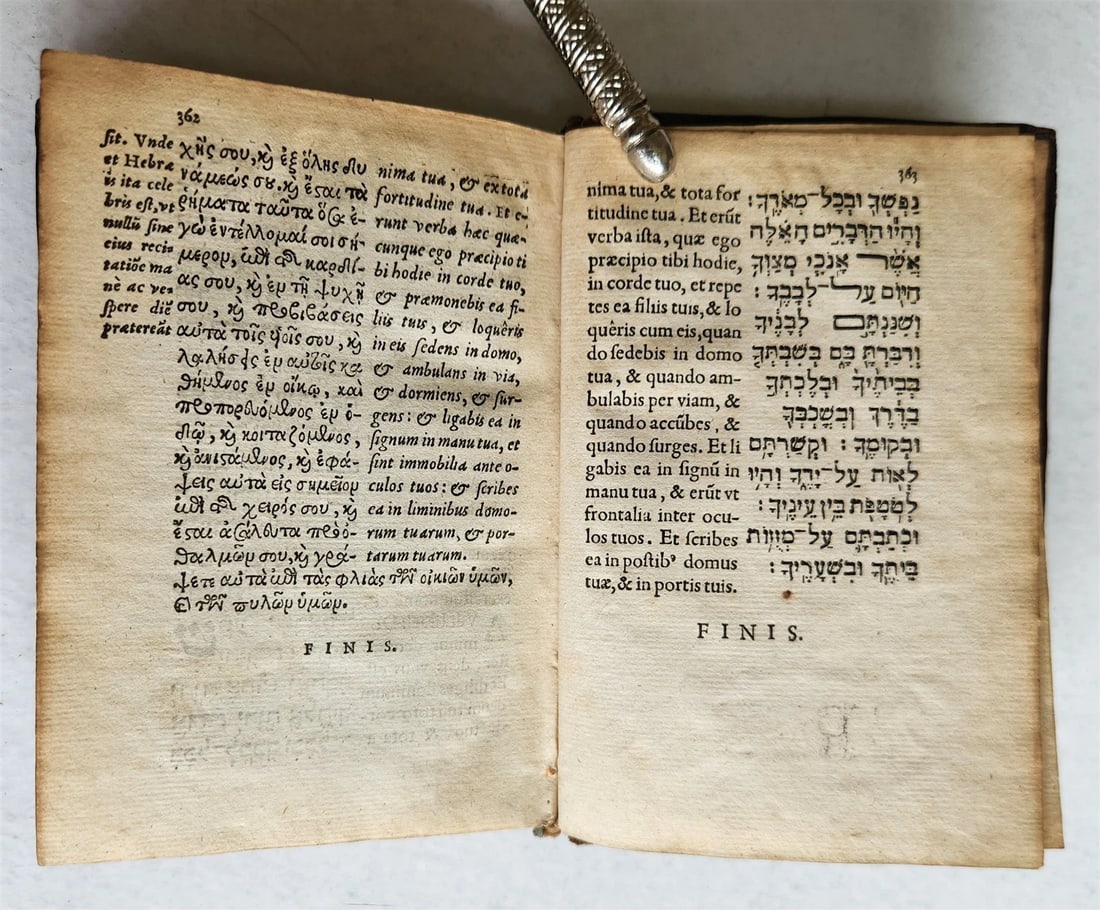 362
sit. Vnde
et Hebræ
is ita cele
bris est, vt
nullũ sine
eius reci-
tatiõe ma
nè ac ve-
spere diẽ
prætereãt
χῆς σου, καὶ ἐξ ὅλης δυ
νάμεώς σου. καὶ ἔσαι τὰ
ῥήματα ταῦτα ὅσα ἐ-
γὼ ἐντέλλομαί σοι σή-
μερον, ἐπὶ τῆ καρδί-
ας σου, καὶ ἐν τῇ ψυχῇ
σου, καὶ προβιβάσεις
αὐτὰ τοῖς υἱοῖς σου, καὶ
λαλήσεις ἐν αὐτοῖς κα
θήμενος ἐν οἴκῳ, καὶ
πορευόμενος ἐν ὁ-
δῷ, καὶ κοιταζόμενος,
καὶ ἀνιστάμενος, καὶ ἐφά-
ψεις αὐτὰ εἰς σημεῖον
ἐπὶ τῆς χειρός σου, καὶ
ἔσαι ἀσάλευτα πρὸ ὀ-
φθαλμῶν σου, καὶ γρά-
ψετε αὐτὰ ἐπὶ τὰς φλιὰς τῶν οἰκιῶν ὑμῶν,
καὶ τῶν πυλῶν ὑμῶν.
nima tua, & ex tota
fortitudine tua. Et e-
runt verba hæc quæ-
cunque ego præcipio ti
bi hodie in corde tuo,
& præmonebis ea fi-
liis tuis, & loquêris
in eis sedens in domo,
& ambulans in via,
& dormiens, & sur-
gens: & ligabis ea in
signum in manu tua, et
sint immobilia ante o-
culos tuos: & scribes
ea in liminibus domo-
rum tuarum, & por-
tarum tuarum.
FINIS.
363
nima tua, & tota for
titudine tua. Et erũt
verba ista, quæ ego
præcipio tibi hodie,
in corde tuo, et repe
tes ea filiis tuis, & lo
quêris cum eis, quan
do sedebis in domo
tua, & quando am-
bulabis per viam, &
quando accũbes, &
quando surges. Et li
gabis ea in signũ in
manu tua, & erũt vt
frontalia inter ocu-
los tuos. Et scribes
ea in postibꝰ domus
tuæ, & in portis tuis.
נַפְשְׁךָ וּבְכָל־מְאֹדֶךָ׃
וְהָיוּ הַדְּבָרִים הָאֵלֶּה
אֲשֶׁר אָנֹכִי מְצַוְּךָ
הַיּוֹם עַל־לְבָבֶךָ׃
וְשִׁנַּנְתָּם לְבָנֶיךָ
וְדִבַּרְתָּ בָּם בְּשִׁבְתְּךָ
בְּבֵיתֶיךָ וּבְלֶכְתְּךָ
בַדֶּרֶךְ וְבְשָׁכְבְּךָ
וּבְקוּמֶךָ׃ וּקְשַׁרְתָּם
לְאוֹת עַל־יָדֶךָ וְהָיוּ
לְטֹטָפֹת בֵּין עֵינֶיךָ׃
וּכְתַבְתָּם עַל־מְזוּזוֹת
בֵּיתֶךָ וּבִשְׁעָרֶיךָ׃
FINIS.